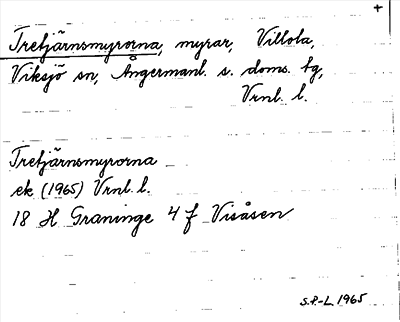 +
Tretjärnsmyrorna, myrar, Villola,
Viksjö sn, Ångermanl. s. doms. tg,
Vrnl. l.
Tretjärnsmyrorna
ek (1965) Vrnl. l.
18 H Graninge 4 f Visåsen
S.P.-L 1965